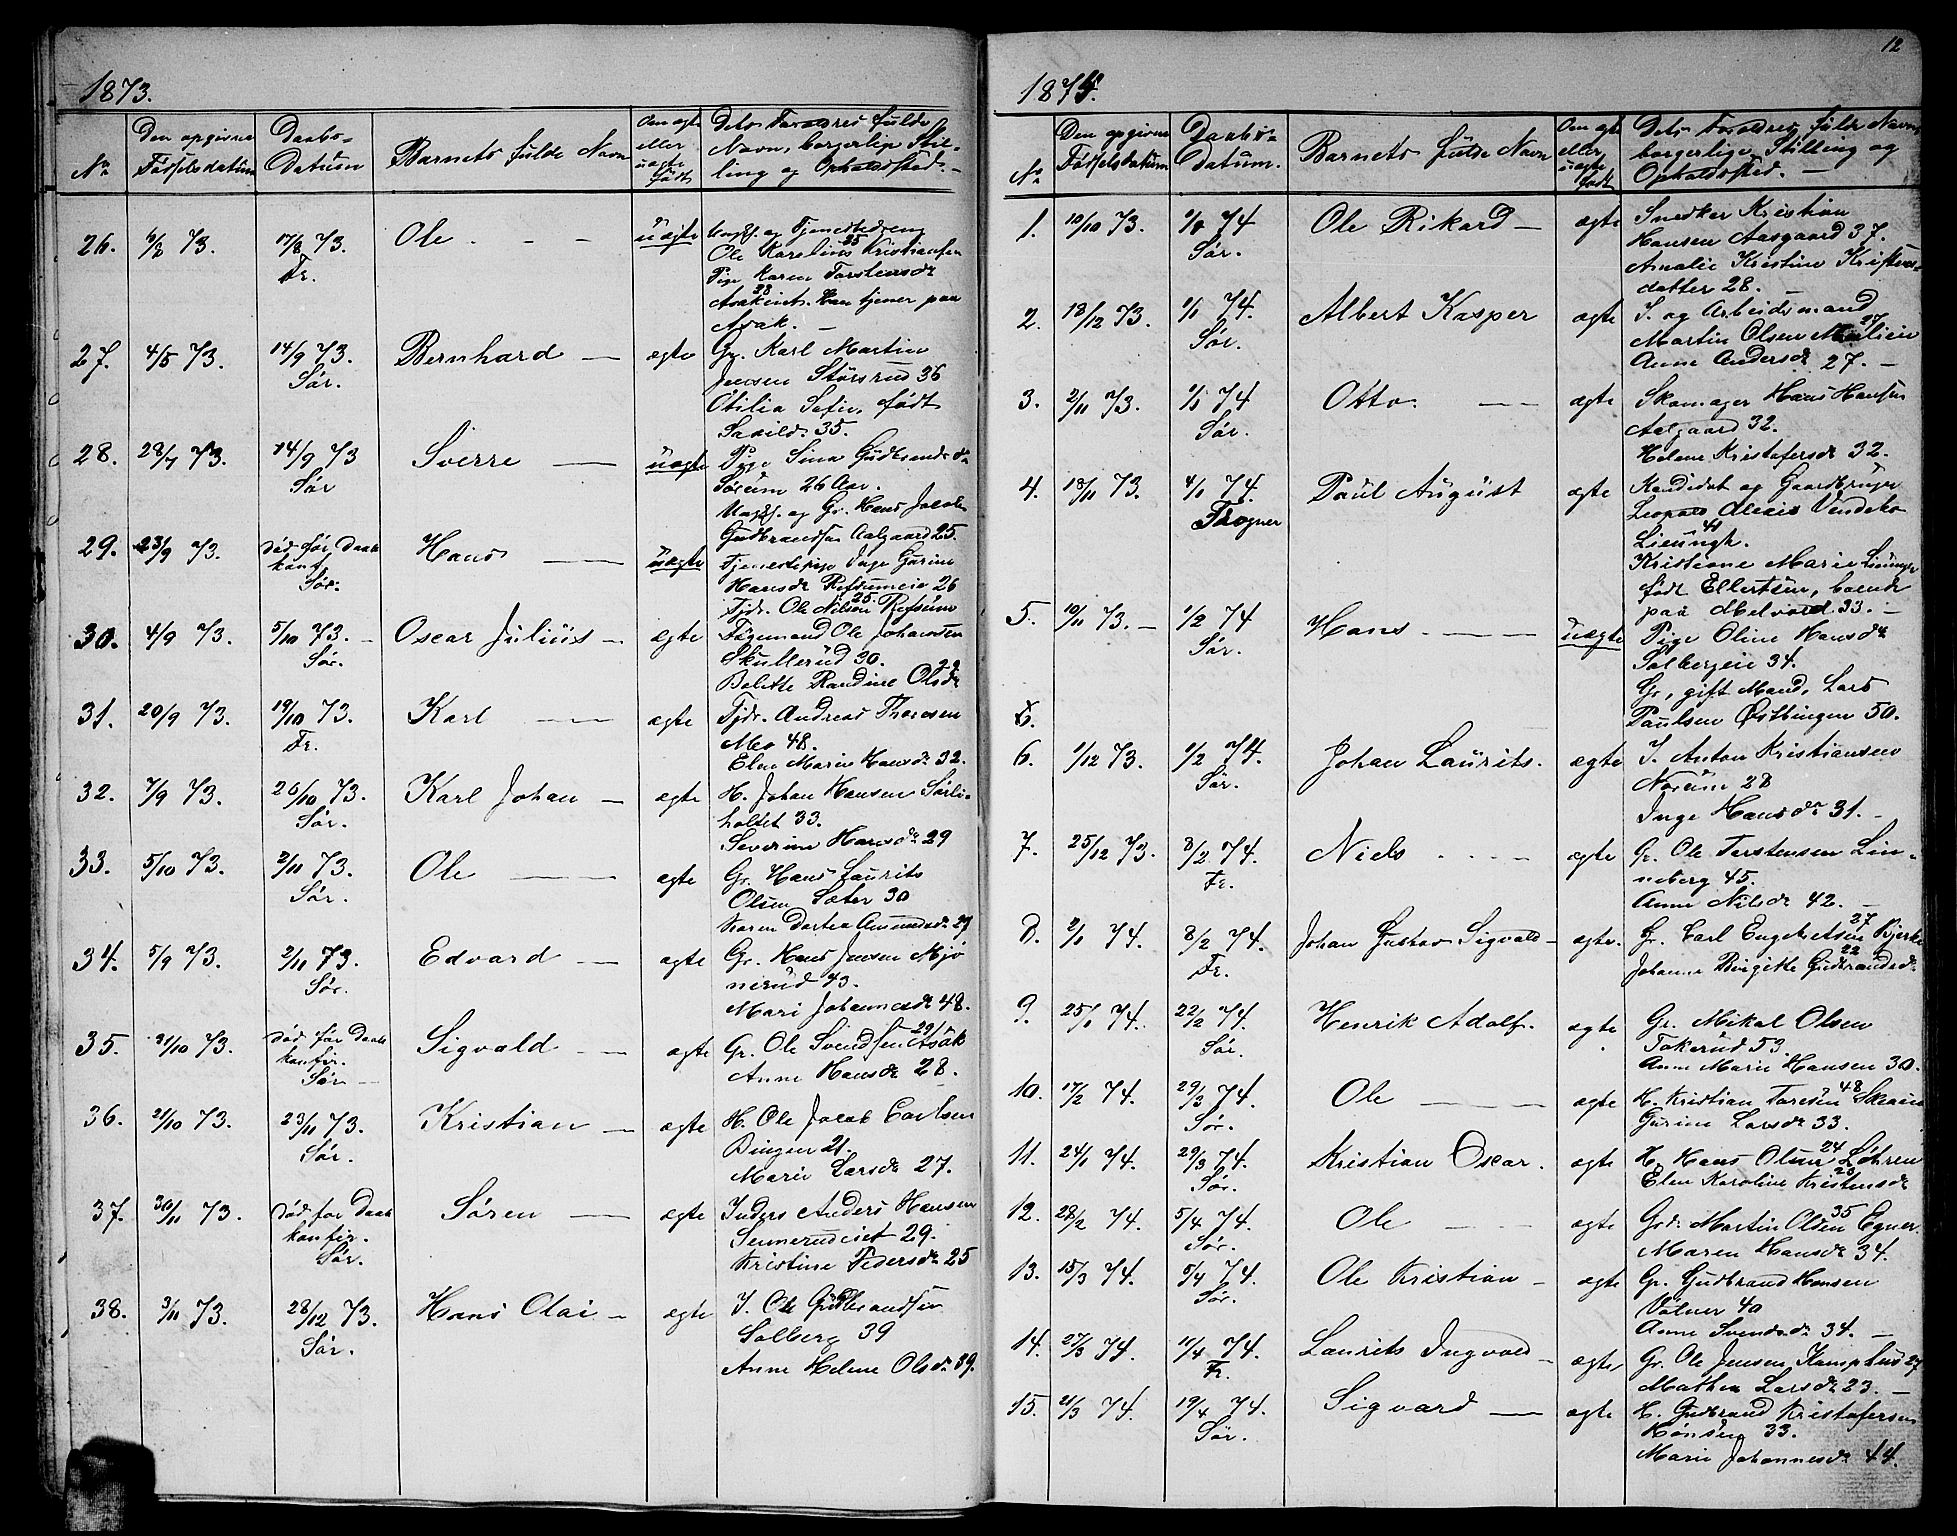 1873.
No
Den opgivne Fødselsdatum
Daabs-Datum
Barnets fulde Navn
Om ægte eller uægte født
Dets Forældres fulde Navn, borgerlige Stilling og Opholdssted.
26. 6/2 73. 17/8 73. Fr. Ole uægte
Ungk. og Tjenestedreng
Ole Karelius 25 Kristiansen
Pige Karen Torstensdr
28
Tjener paa
Asak.
27. 4/5 73. 14/9 73. Sør. Bernhard ægte Gr. Karl Martin
Jensen Størsrud 36
Otilia Sofie, født
35.
28. 28/7 73. 14/9 73 Sør Sverre uægte Pige Sina Gudbrandsdr
Sørum 26 Aar.
Ungk. og Gr. Hans Jacob
Gudbrandsen Aalgaard 25.
29. 23/9 73. død før Daab konf. Sør. Hans uægte
Tjenestepige Inge Gurine
Hansdr Refsumeie 26
Tjdr. Ole Nilsen 25. Refsum
30. 4/9 73. 5/10 73. Sør. Oscar Julius ægte
Ole Johannsen
Skullerud 30.
Belette Randine Olsdr 22
31. 20/9 73. 19/10 73. Fr. Karl ægte Tjdr. Andreas Thoresen
Moe 48.
Elen Marie Hansdr 32.
32. 7/9 73. 26/10 73. Sør. Karl Johan ægte H. Johan Hansen Sørli-
holtet 33.
Severine Hansdr 29
33. 5/10 73. 2/11 73. Sør. Ole ægte Gr. Hans Laurits
Olsen Sæter 30
Karen Dortea Amundsdr 29
34. 5/9 73. 2/11 73. Sør. Edvard ægte Gr. Hans Jensen Mjø
nerud 43.
Mari Johannesdr 48.
35. 21/10 73. død før Daab konfir. Sør Sigvald ægte Gr. Ole Svendsen 29 Asak
Anne Hansdr 28.
36. 21/10 73. 23/11 73. Sør. Kristian ægte H. Ole Jacob Carlsen
Bingen 21.
Marie Larsdr 27.
37. 30/11 73. død før Daab konfir. Sør. Søren ægte Inders Anders Hansen
29.
Kristine Pedersdr 25
38. 3/11 73. 28/12 73. Sør. Hans Olai ægte I. Ole Gudbrandsen
Solberg 39
Anne Helene Olsdr 39.
12
1874.
No
Den opgivne Fødselsdatum
Daabs-Datum.
Barnets fulde Navn
Om ægte eller uægte født
Dets Forældres fulde Navn, borgerlige Stilling og Opholdssted.
1. 10/10 73. 1/1 74 Sør. Ole Rikard ægte Snedker Kristian
Hansen Aasgaard 37.
Amalie Kristine Kristens-
datter 28.
2. 18/12 73. 1/1 74. Sør. Albert Kasper ægte I. og Arbeidsmand
Martin Olsen 27
Anne Andersdr 27.
3. 2/11 73. 1/1 74 Sør. Otto. ægte Skomager Hans Hansen
Aalgaard 32.
Helene Kristofersdr 32.
4. 18/11 73. 4/1 74. Frogner Paul August ægte Kandidat og Gaardbruger
Leopold Alexis Vendelbo
Lieungh. 41
Kristiane Marie Lieungh
født Ellertsen, boende
paa Melvold 33.
5. 10/11 73. 1/2 74 Sør. Hans uægte Pige Oline Hansdr
Solbergeie 34.
Gr., gift Mand, Lars
Paulsen Østbingen 50.
6. 1/12 73. 1/2 74. Sør. Johan Laurits. ægte I. Anton Kristiansen
Norum 28
Inge Hansdr 31.
7. 25/12 73. 8/2 74. Fr. Niels ægte Gr. Ole Torstensen Lin-
neberg 45.
Anne Nilsdr 42.
8. 2/1 74. 8/2 74. Fr. Johan Gustav Sigvald ægte. Gr. Carl Engebretsen 27 Bjerke
Johanne Birgitte 22 Gudbrandsdr
9. 25/1 74. 22/2 74. Sør. Henrik Adolf. ægte Gr. Mikal Olsen
Tokerud 53.
Anne Marie Hansen 30.
10. 17/2 74. 29/3 74. Sør. Ole ægte H. Kristian Toresen 48
Gurine Larsdr 33.
11. 24/1 74. 29/3 74. Sør. Kristian Oscar. ægte H. Hans Olsen 24 Løhren
Elen Karoline Kristensdr
12. 28/2 74. 5/4 74. Sør. Ole ægte Grd. Martin Olsen 35 Egner
Maren Hansdr 34.
13. 15/3 74. 5/4 74. Sør. Ole Kristian ægte Gr. Gudbrand Hansen
Vølner 40
Anne Svendsdr 34.
14. 27/3 74. 11/4 74. Fr. Laurits Ingvald ægte Gr. Ole Jensen Kamphus 27
Mathea Larsdr 23.
15. 21/3 74. 19/4 74. Sør. Sigvard ægte H. Gudbrand Kristofersen
Hønsen 33.
Marie Johannesdr 44.